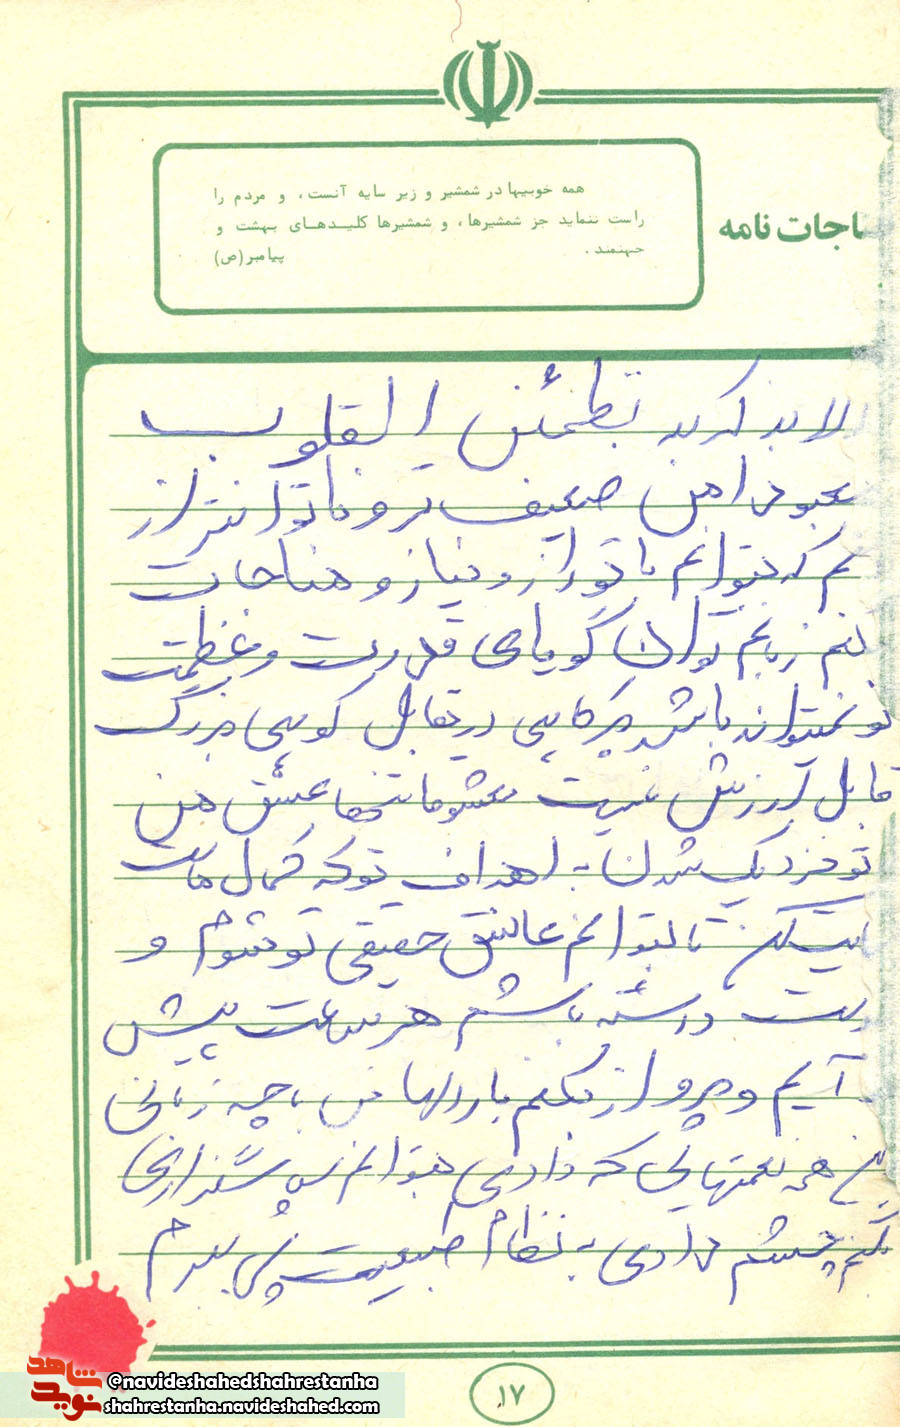 همه خوبیها در شمشیر و زیر سایه آنست، و مردم را
راست ننماید جز شمشیرها، و شمشیرها کلیدهای بهشت و
جهنمند. پیامبر(ص)
اجات نامه
الا بذکر الله تطمئن القلوب
معبودا من ضعیف تر و ناتوانتر از
که بتوانم با تو راز و نیاز و مناجات
کنم زبانم توان گویای قدرت و عظمت
تو نمیتواند باشد پر کاهی در مقابل کوهی بزرگ
قابل ارزش نیست معشوقا تنها عشق من
تو نزدیک شدن به اهداف تو که کمال
تا بتوانم عاشق حقیقی تو شوم و
داشته باشم هر ساعت پیش
آیم و پرواز بکنم بارالها من با چه زبانی
این همه نعمتهایی که دادی بتوانم سپاسگزاری
بکنم چشم دادی به نظام طبیعت پی ببرم
۱۷
شاهد
نوید
@navideshahedshahrestanha
shahrestanha.navideshahed.com